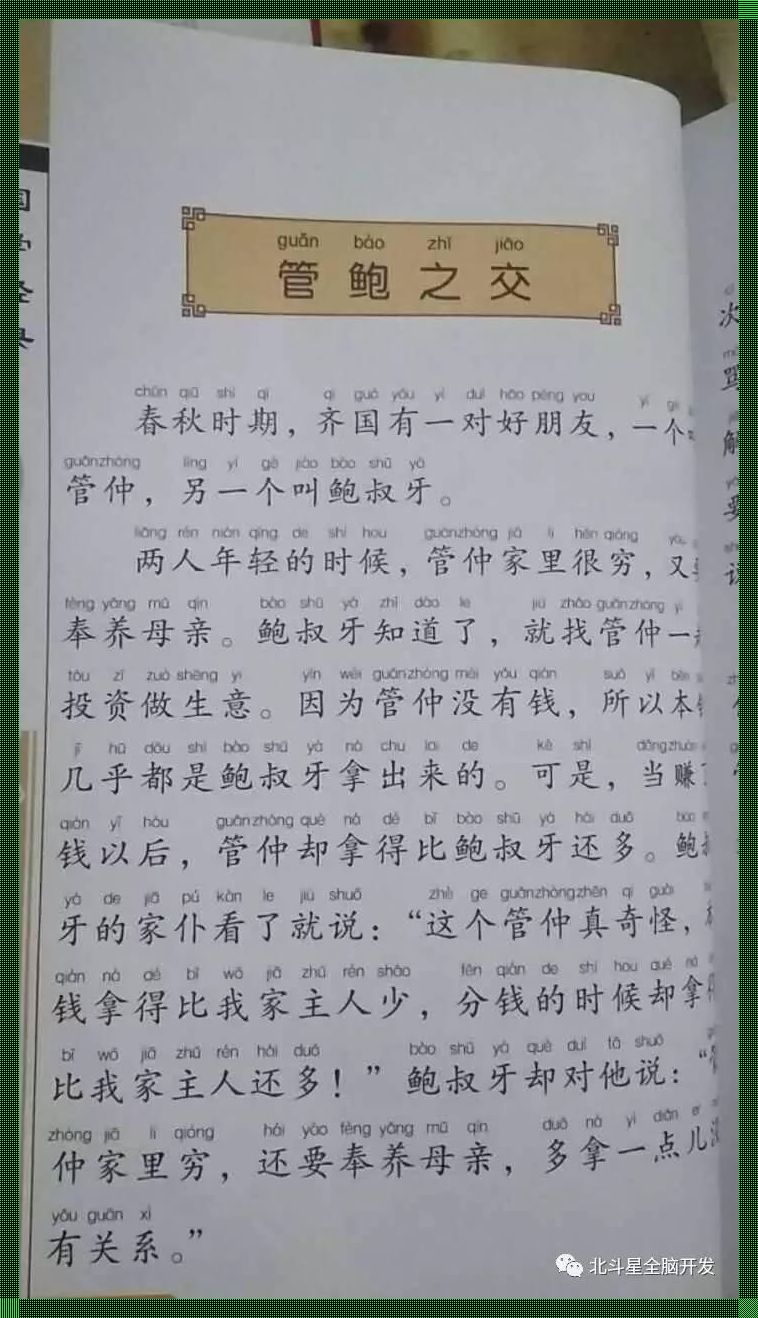 guǎn bào zhī jiāo
管鲍之交
chūn qiū shí qī qí guó yǒu yí duì hǎo péng you yí gè
春秋时期，齐国有一对好朋友，一个
guǎnzhòng lìng yí gè jiào bào shū yá
管仲，另一个叫鲍叔牙。
liǎng rén nián qīng de shí hou guǎnzhòng jiā li hěn qióng yòu
两人年轻的时候，管仲家里很穷，又
fèng yǎng mǔ qīn bào shū yá zhī dào le jiù zhǎo guǎnzhòng yì
奉养母亲。鲍叔牙知道了，就找管仲一
tóu zī zuò shēng yi yīn wèi guǎnzhòng méi yǒu qián suǒ yǐ běn
投资做生意。因为管仲没有钱，所以本
jī hū dōu shì bào shū yá ná chu lai de kě shì dāngzhuàn
几乎都是鲍叔牙拿出来的。可是，当赚
qián yǐ hòu guǎnzhòng què ná dé bǐ bào shū yá hái duō bào
钱以后，管仲却拿得比鲍叔牙还多。鲍
yá de jiā pú kàn le jiù shuō zhè ge guǎnzhòngzhēn qí guài
牙的家仆看了就说：“这个管仲真奇怪，
qián ná dé bǐ wǒ jiā zhǔ rén shǎo fēn qián de shí hou què ná
钱拿得比我家主人少，分钱的时候却拿
bǐ wǒ jiā zhǔ rén hái duō bào shū yá què duì tā shuō
比我家主人还多！”鲍叔牙却对他说：“
zhòng jiā li qióng hái yào fèng yǎng mǔ qīn duō ná yì diǎn
仲家里穷，还要奉养母亲，多拿一点儿
yǒu guān xì
有关系。”
北斗星全脑开发